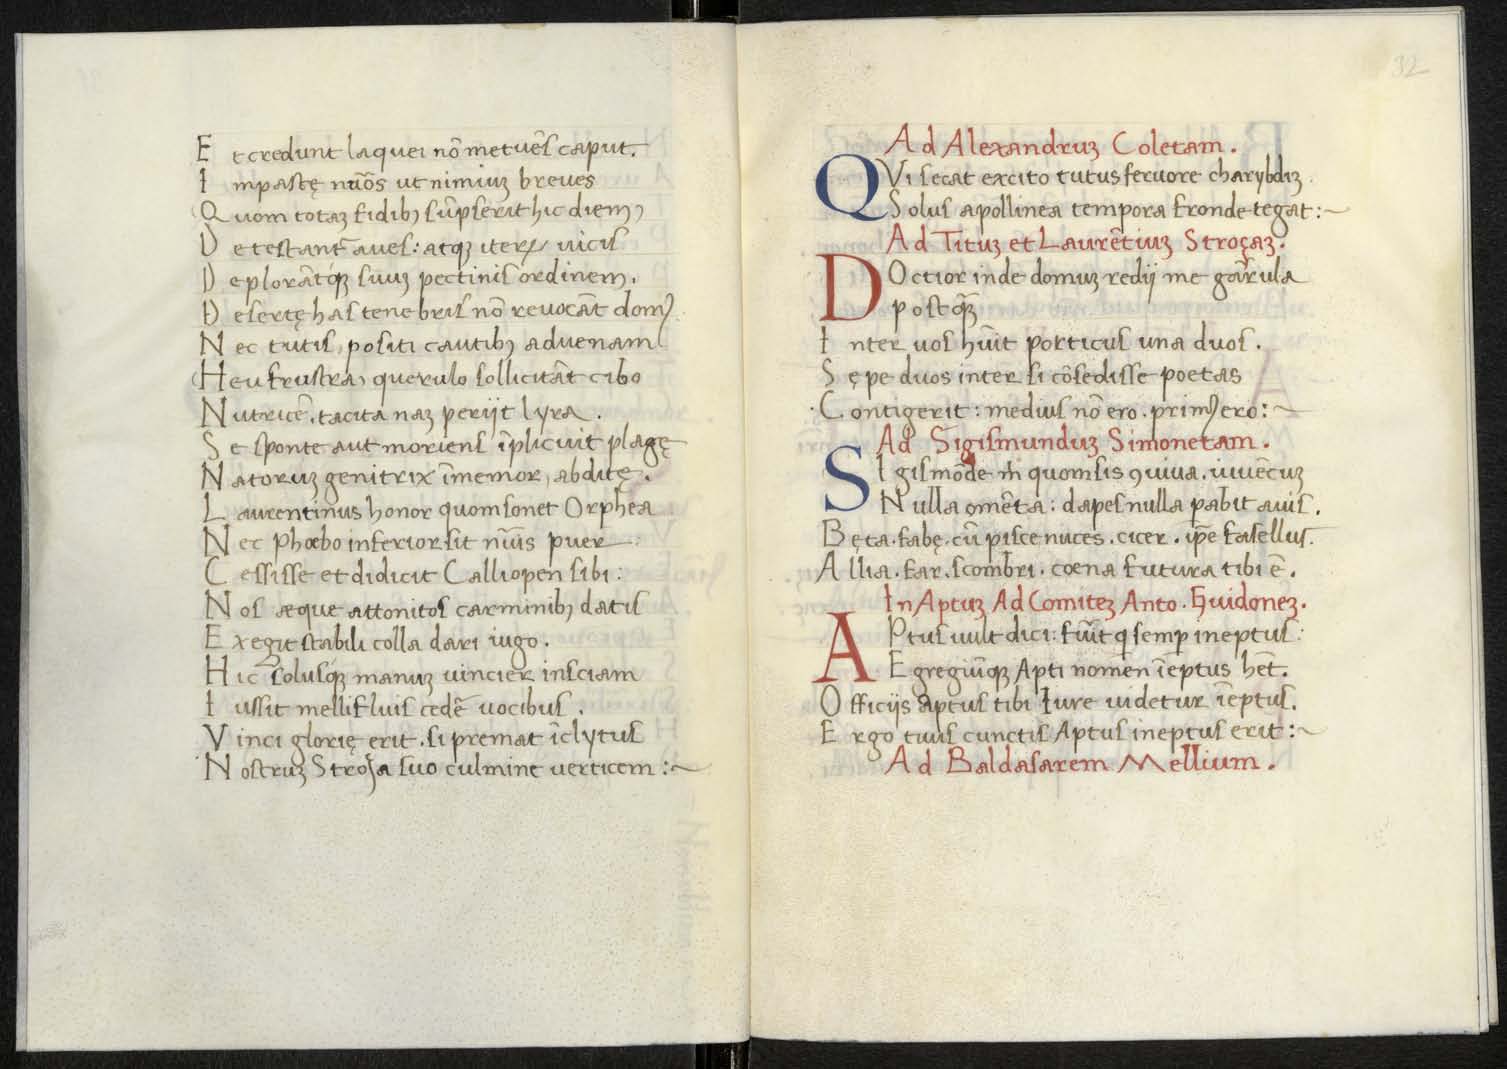 Et credunt laquei nō metuēs caput.
Impastę nuōs ut nimiuʒ breues
Quom totaʒ fidibꝫ sūpserit hic diemꝫ
Detestant᷑ aues: atqꝫ iterꝫ uicis
Deplorātqꝫ suuʒ pectinis ordinem.
Desertę has tenebris nō reuocāt domꝰ
Nec tutis, positi cautibꝫ aduenam
Heu frustra, querulo sollicitāt cibo
Nutricē. tacita naʒ perijt lyra.
Se sponte aut moriens īplicuit plagę
Natoruʒ genitrix īmemor, abditę.
Laurentinus honor quom sonet Orphea
Nec Phœbo inferior sit nūis puer
Cessisse et didicit Calliopen sibi:
Nos æque attonitos carminibꝫ datis
Exegit stabili colla dari iugo.
Hic solusqꝫ manuʒ uincier insciam
Iussit mellifluis cedē uocibus.
Vinci glorię erit. si premat īclytus
Nostruʒ Stroʒa suo culmine uerticem:~
32
Ad Alexandruʒ Coletam.
QVi secat excito tutus feruore charybdiʒ.
Solus apollinea tempora fronde tegat:~
Ad Tituʒ et Laurētiuʒ Stroçaʒ.
DOctior inde domuʒ redij me garrula
postqꝫ̄
Inter uos hūit porticus una duos.
Sępe duos inter si cōsedisse poetas
Contigerit: medius nō ero. primꝰ ero:~
Ad Sigismunduʒ Simonetam.
SIgismōde m̄ quom sis ꝯuiua. iuuēcuʒ
Nulla omēta: dapes nulla pabit auis.
Bęta. fabę. cū pisce nuces. cicer. ip̄e faselluſ.
Allia. far. scombri. cœna futura tibi ē.
In Aptuʒ Ad Comiteʒ Anto. Guidoneʒ.
APtus uult dici: fūit q semp ineptus:
Egregiūqꝫ Apti nomen īeptus hēt.
Officijs aptus tibi Iure uidetur īeptus.
Ergo tuus cunctis Aptus ineptus erit:~
Ad Baldasarem Mellium.